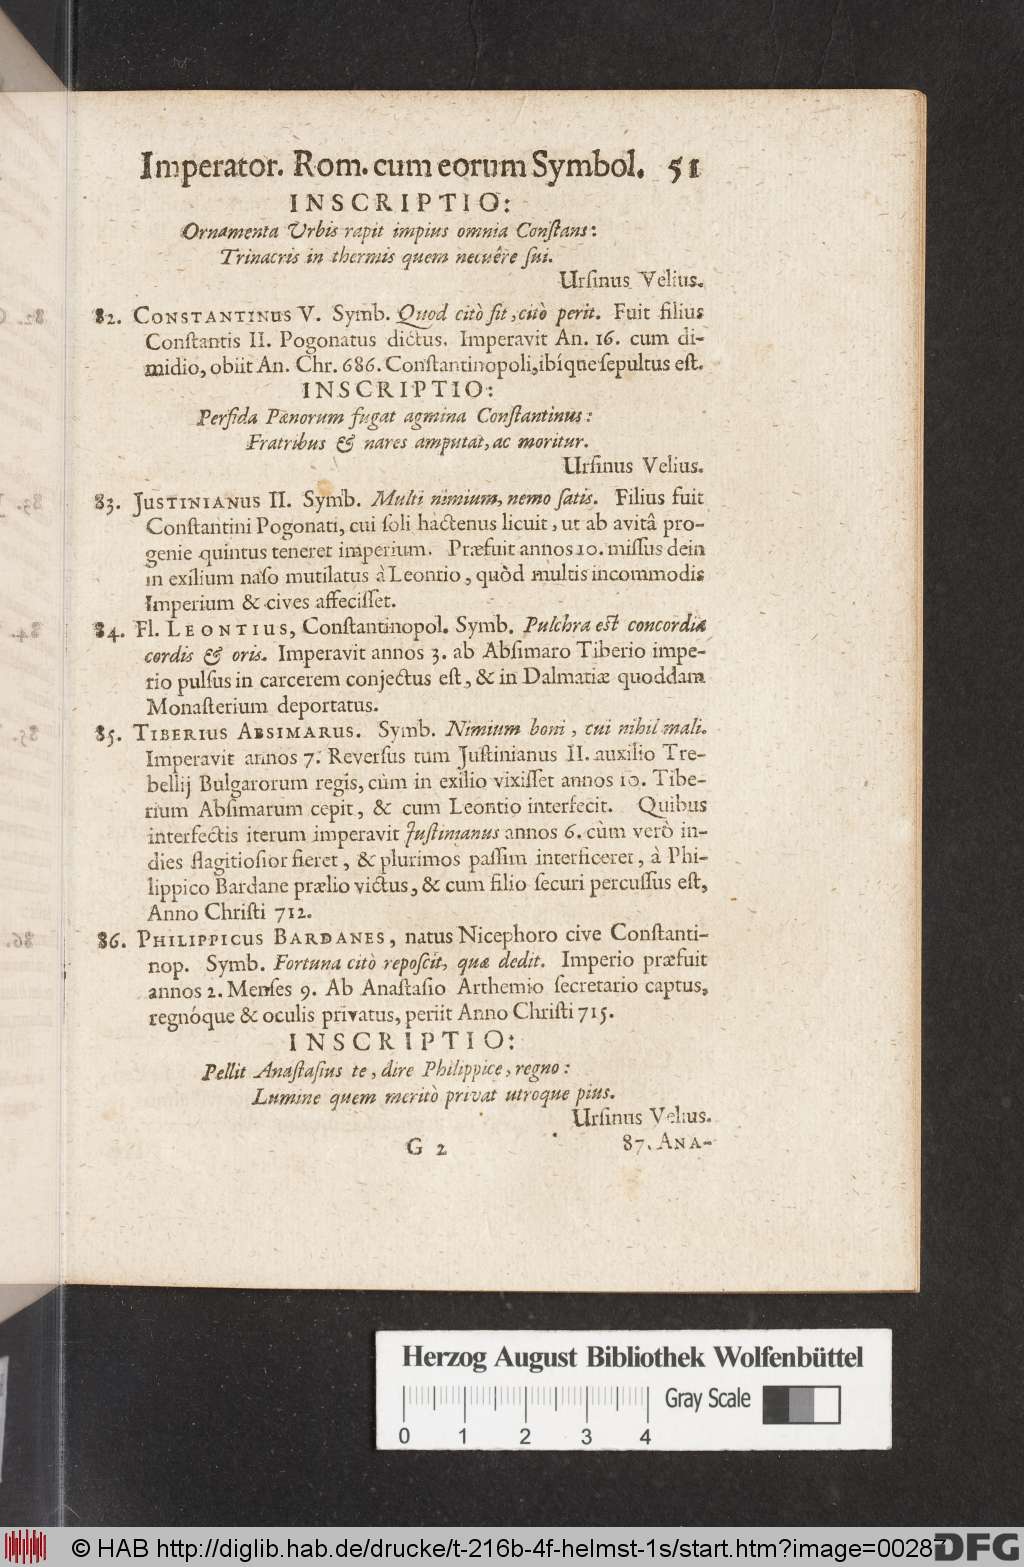 Imperator. Rom. cum eorum Symbol. 51
INSCRIPTIO:
Ornamenta Urbis rapit impius omnia Conſtans:
Trinacris in thermis quem necuêre ſui.
Urſinus Velius.
82. CONSTANTINUS V. Symb. Quod citò fit, citò perit. Fuit filius
Conſtantis II. Pogonatus dictus. Imperavit An. 16. cum di-
midio, obiit An. Chr. 686. Conſtantinopoli, ibíque ſepultus eſt.
INSCRIPTIO:
Perfida Pænorum fugat agmina Conſtantinus:
Fratribus & nares amputat, ac moritur.
Urſinus Velius.
83. JUSTINIANUS II. Symb. Multi nimium, nemo ſatis. Filius fuit
Conſtantini Pogonati, cui ſoli hactenus licuit, ut ab avitâ pro-
genie quintus teneret imperium. Præfuit annos 10. miſſus dein
in exilium naſo mutilatus à Leontio, quòd multis incommodis
Imperium & cives affeciſſet.
84. Fl. LEONTIUS, Conſtantinopol. Symb. Pulchra eſt concordia
cordis & oris. Imperavit annos 3. ab Abſimaro Tiberio impe-
rio pulſus in carcerem conjectus eſt, & in Dalmatiæ quoddam
Monaſterium deportatus.
85. TIBERIUS ABSIMARUS. Symb. Nimium boni, cui nihil mali.
Imperavit annos 7. Reverſus tum Juſtinianus II. auxilio Tre-
bellij Bulgarorum regis, cùm in exilio vixiſſet annos 10. Tibe-
rium Abſimarum cepit, & cum Leontio interfecit. Quibus
interfectis iterum imperavit Juſtinianus annos 6. cùm verò in-
dies flagitioſior fieret, & plurimos paſſim interficeret, à Phi-
lippico Bardane prælio victus, & cum filio ſecuri percuſſus eſt,
Anno Chriſti 712.
86. PHILIPPICUS BARDANES, natus Nicephoro cive Conſtanti-
nop. Symb. Fortuna citò repoſcit, quæ dedit. Imperio præfuit
annos 2. Menſes 9. Ab Anaſtaſio Arthemio ſecretario captus,
regnóque & oculis privatus, periit Anno Chriſti 715.
INSCRIPTIO:
Pellit Anaſtaſius te, dire Philippice, regno:
Lumine quem meritò privat utroque pius.
Urſinus Velius.
G 2 87. ANA-
Herzog August Bibliothek Wolfenbüttel
Gray Scale
0 1 2 3 4
© HAB http://diglib.hab.de/drucke/t-216b-4f-helmst-1s/start.htm?image=00287
DFG